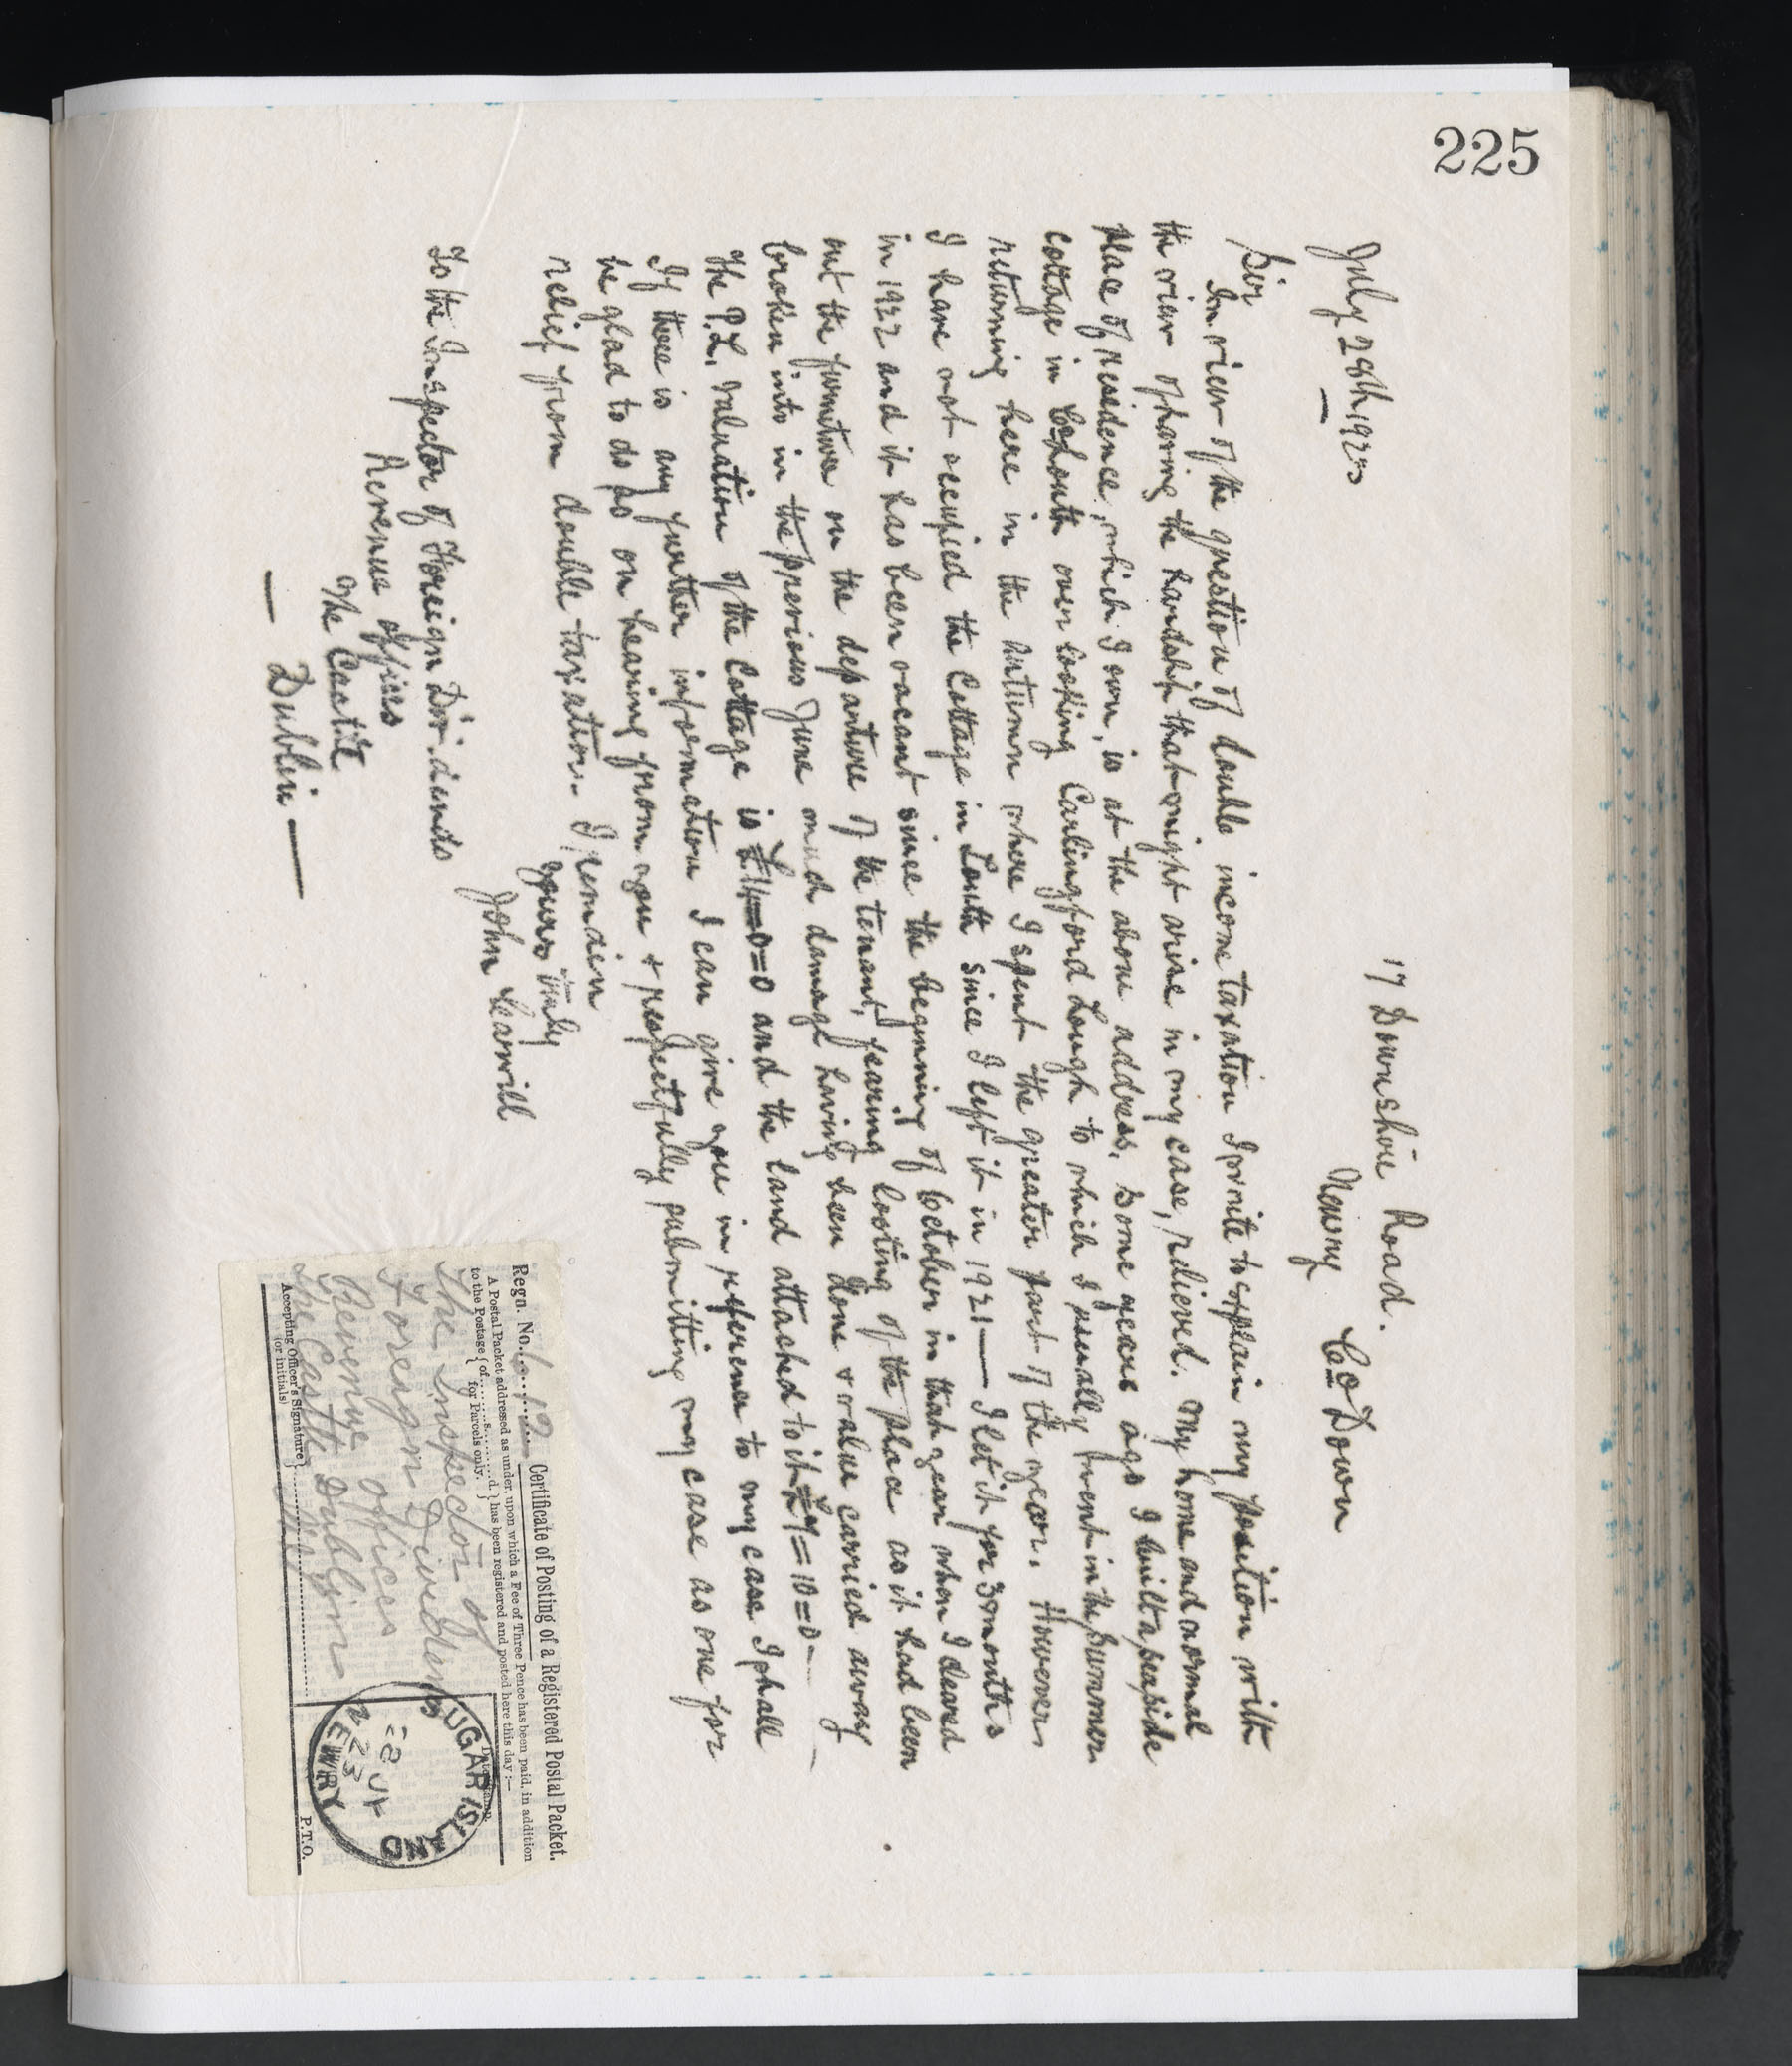 225
17 Downshire Road.
July 28th 1923 Newry Co Down
Sir
In view of the question of double income taxation I write to explain my position with
the view of having the hardship that might arise in my case, relieved. My home and normal
place of residence, which I own, is at the above address. Some years ago I built a seaside
cottage in Co Louth overlooking Carlingford Lough to which I usually went in the Summer
returning here in the autumn where I spent the greater part of the year. However
I have not occupied the Cottage in Louth since I left it in 1921 — I let it for 3 months
in 1922 and it has been vacant since the beginning of October in that year when I cleared
out the furniture on the departure of the tenant, fearing looting of the place as it had been
broken into in the previous June and damage having been done & value carried away —
The P.L. Valuation of the Cottage is £14=0=0 and the land attached to it £7=10=0 —
If there is any further information I can give you in reference to my case I shall
be glad to do so on hearing from you & respectfully submitting my case as one for
relief from double taxation. I remain
yours truly
John
To the Inspector of Foreign Dividends
Revenue Offices
The Castle
— Dublin —
Certificate of Posting of a Registered Postal Packet.
Regn. No.
A Postal Packet addressed as under, upon which a Fee of Three Pence has been paid, in addition
to the Postage { of ........s.........d. } has been registered and posted here this day:—
for Parcels only.
Date Stamp.
The Inspector of
Foreign Dividends
Revenue Offices
The Castle Dublin
Accepting Officer's Signature }
(or initials)
P.T.O.
SUGAR ISLAND
28 JY
23
NEWRY